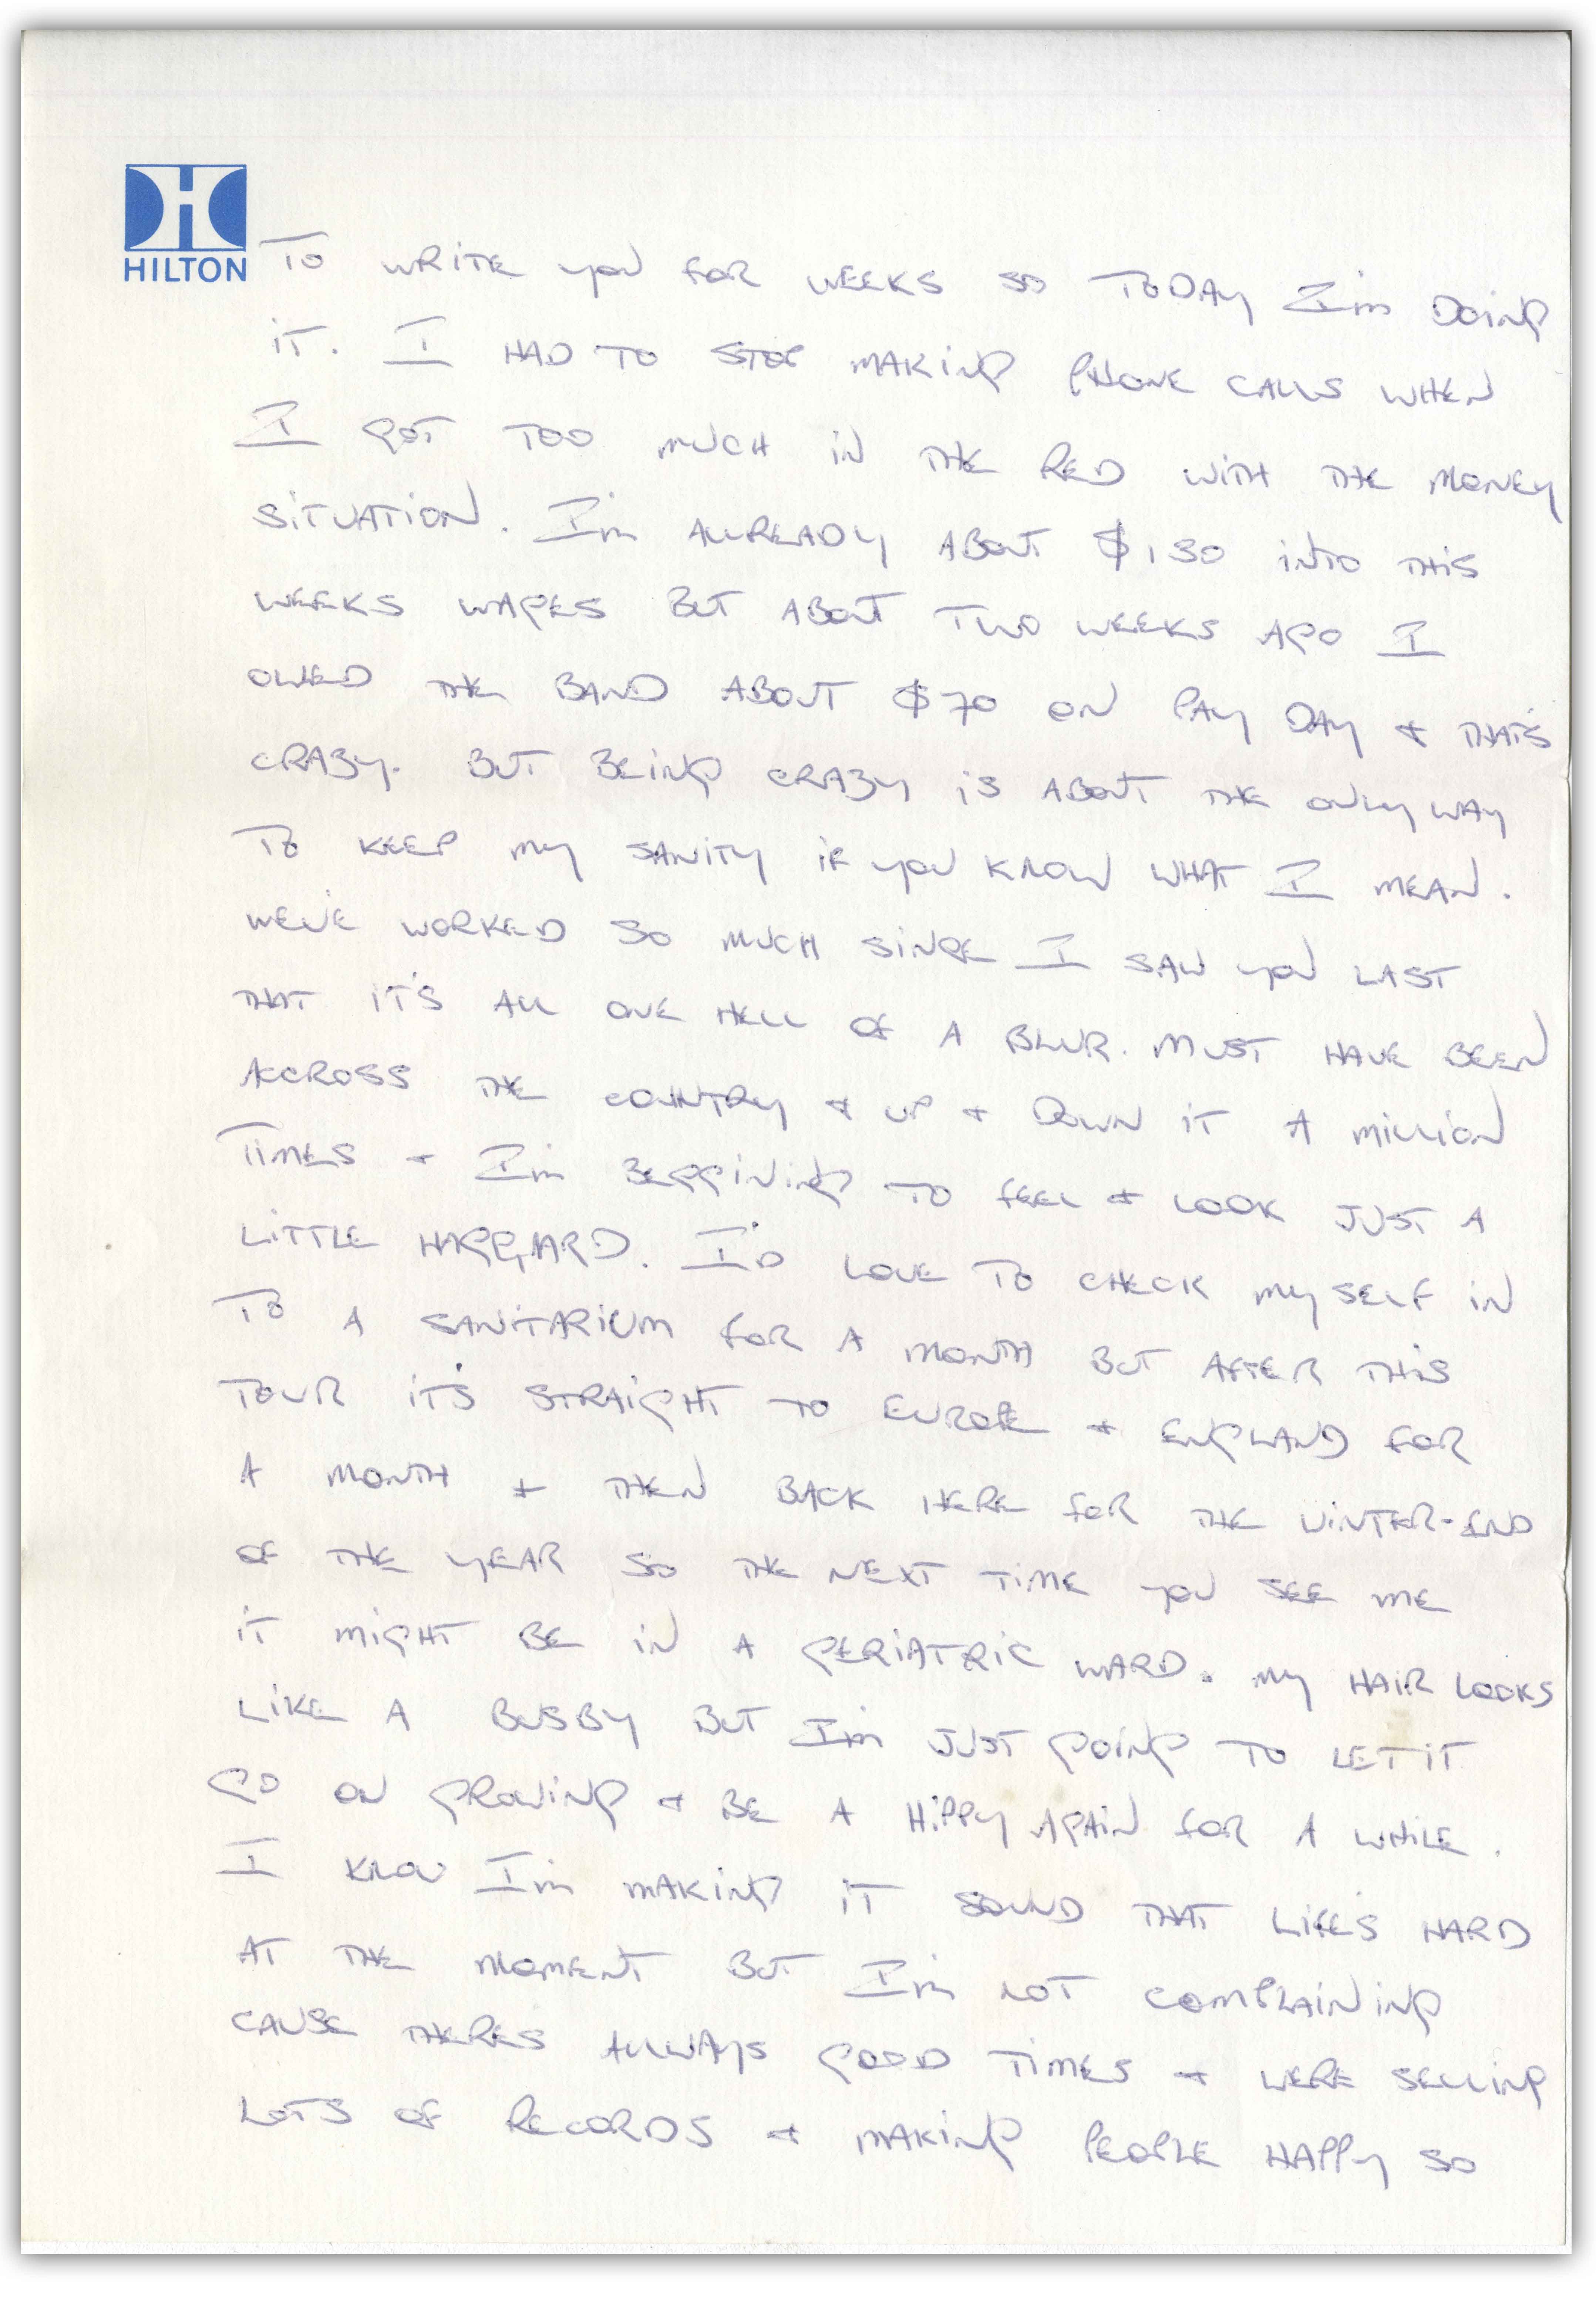 HILTON
TO WRITE YOU FOR WEEKS SO TODAY I'm DOING
iT. I HAD TO STOP MAKING PHONE CALLS WHEN
I GOT TOO MUCH IN THE RED WITH THE MONEY
SITUATION. I'm ALLREADY ABOUT $130 INTO THIS
WEEKS WAGES BUT ABOUT TWO WEEKS AGO I
OWED THE BAND ABOUT $70 ON PAY DAY & THAT'S
CRAZY. BUT BEING CRAZY IS ABOUT THE ONLY WAY
TO KEEP MY SANITY IF YOU KNOW WHAT I MEAN.
WE'VE WORKED SO MUCH SINCE I SAW YOU LAST
THAT IT'S ALL ONE HELL OF A BLUR. MUST HAVE BEEN
ACCROSS THE COUNTRY & UP & DOWN IT A MILLION
TIMES & I'm BEGGINING TO FEEL & LOOK JUST A
LITTLE HAGGARD. I'D LOVE TO CHECK MYSELF IN
TO A SANITARIUM FOR A MONTH BUT AFTER THIS
TOUR IT'S STRAIGHT TO EUROPE & ENGLAND FOR
A MONTH & THEN BACK HERE FOR THE WINTER-END
OF THE YEAR SO THE NEXT TIME YOU SEE ME
IT MIGHT BE IN A GERIATRIC WARD. MY HAIR LOOKS
LIKE A BUSBY BUT I'm JUST GOING TO LET IT
GO ON GROWING & BE A HIPPY AGAIN FOR A WHILE.
I KNOW I'm MAKING IT SOUND THAT LIFE'S HARD
AT THE MOMENT BUT I'm NOT COMPLAINING
CAUSE THERES ALLWAYS GOOD TIMES & WERE SELLING
LOTS OF RECORDS & MAKING PEOPLE HAPPY SO